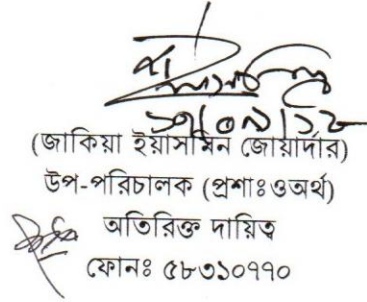 (জাকিয়া ইয়াসমিন জোয়ার্দার)
উপ-পরিচালক (প্রশাঃওঅর্থ)
অতিরিক্ত দায়িত্ব
ফোনঃ ৫৮৩১০৭৭০